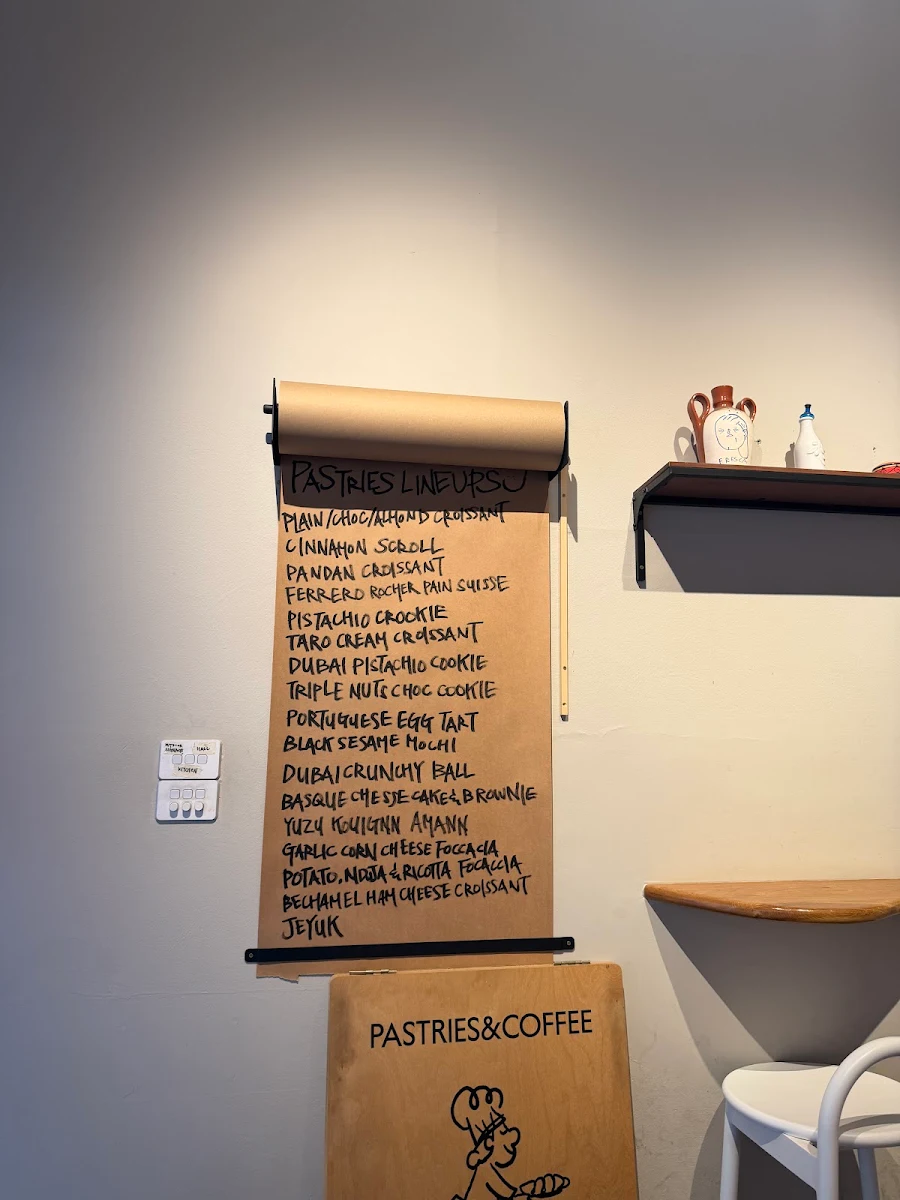 PASTRIES LINEUPS
PLAIN/CHOC/ALMOND CROISSANT
CINNAMON SCROLL
PANDAN CROISSANT
FERRERO ROCHER PAIN SUISSE
PISTACHIO CROOKIE
TARO CREAM CROISSANT
DUBAI PISTACHIO COOKIE
TRIPLE NUTS CHOC COOKIE
PORTUGUESE EGG TART
BLACK SESAME MOCHI
DUBAI CRUNCHY BALL
BASQUE CHESSE CAKE & BROWNIE
YUZU KOUIGNN AMANN
GARLIC CORN CHEESE FOCCACIA
POTATO, NDUJA & RICOTTA FOCACCIA
BECHAMEL HAM CHEESE CROISSANT
JEYUK
HALL
KITCHEN
PASTRIES&COFFEE